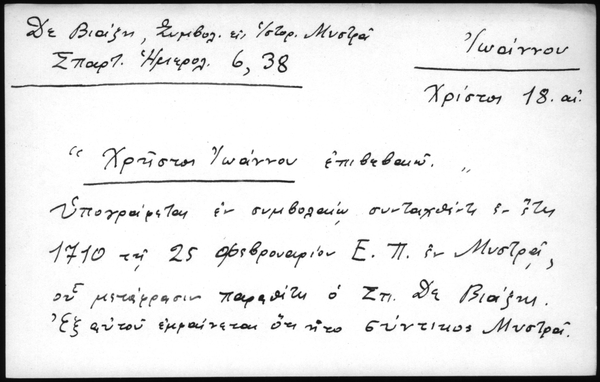 Δε Βιάζη, Συμβολ. εις Ἱστορ. Μυστρᾶ
Σπαρτ. Ἡμερολ. 6, 38
Ἰωάννου
Χρίστος 18. αἰ.
“Χρῆστος Ἰωάννου ἐπιβεβαιῶ.„
Ὑπογράφεται ἐν συμβολαίῳ συνταχθέντι ἐν ἔτει
1710 τῇ 25 Φεβρουαρίου Ε. Π. ἐν Μυστρᾷ,
οὗ μετάφρασιν παραθέτει ὁ Σπ. Δε Βιάζης.
Ἐξ αὐτοῦ ἐμφαίνεται ὅτι ἦτο σύντικος Μυστρᾶ.